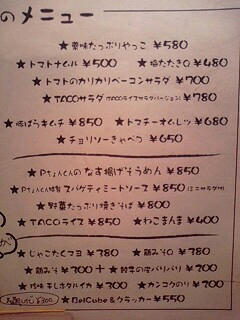 のメニュー
★薬味たっぷりやっこ ¥580
★トマトナムル ¥500 ★塩たたきQ ¥480
★トマトのカリカリベーコンサラダ ¥700
★TACOサラダ(TACOライスサラダバージョン) ¥780
★豚ばらキムチ ¥850 ★トマチーオムレツ ¥680
★チョリソーきゃべつ ¥650
のなす揚げそうめん ¥850
スパゲティミートソース ¥850(ミニサラダ付)
★野菜たっぷり焼きそば ¥800
★TACOライス ¥850 ★ねこまんま ¥400
★じゃこたくマヨ ¥380 ★鶏みそQ ¥380
★鶏みそ ¥300 + ★餃子の皮パリパリ ¥200
干しホタルイカ ¥300 ★カンコクのり ¥200
¥300 ★BelCube&クラッカー ¥550